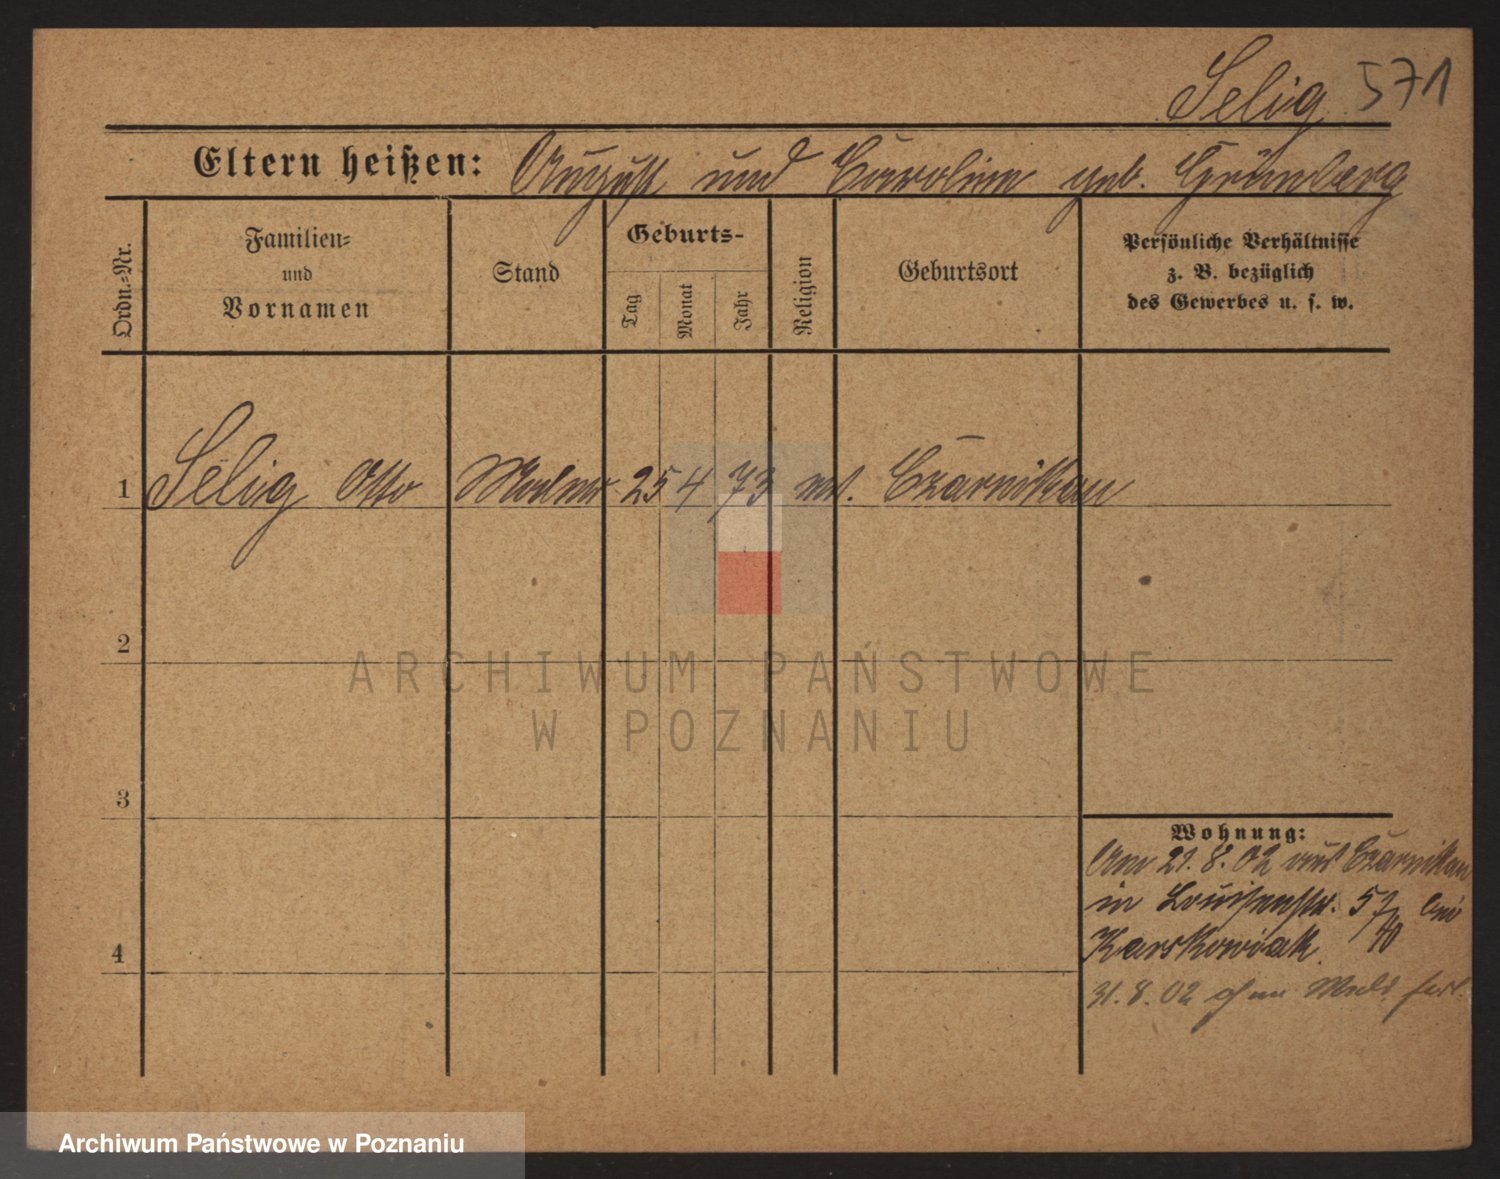 Selig 571
Eltern heißen: August und Caroline geb. Grünberg
Ordn.-Nr.
Familien-
und
Vornamen
Stand
Geburts-
Tag
Monat
Jahr
Religion
Geburtsort
Persönliche Verhältnisse
z. B. bezüglich
des Gewerbes u. s. w.
1 Selig Otto 25 4 73 Czarnikau
2
3
4
Wohnung:
Am 21. 8. 02 aus Czarnikau
in Louisenstr. 57/40 bei
Karskowiak.
31. 8. 02 ohne Meld. fort.
ARCHIWUM PAŃSTWOWE
W POZNANIU
Archiwum Państwowe w Poznaniu